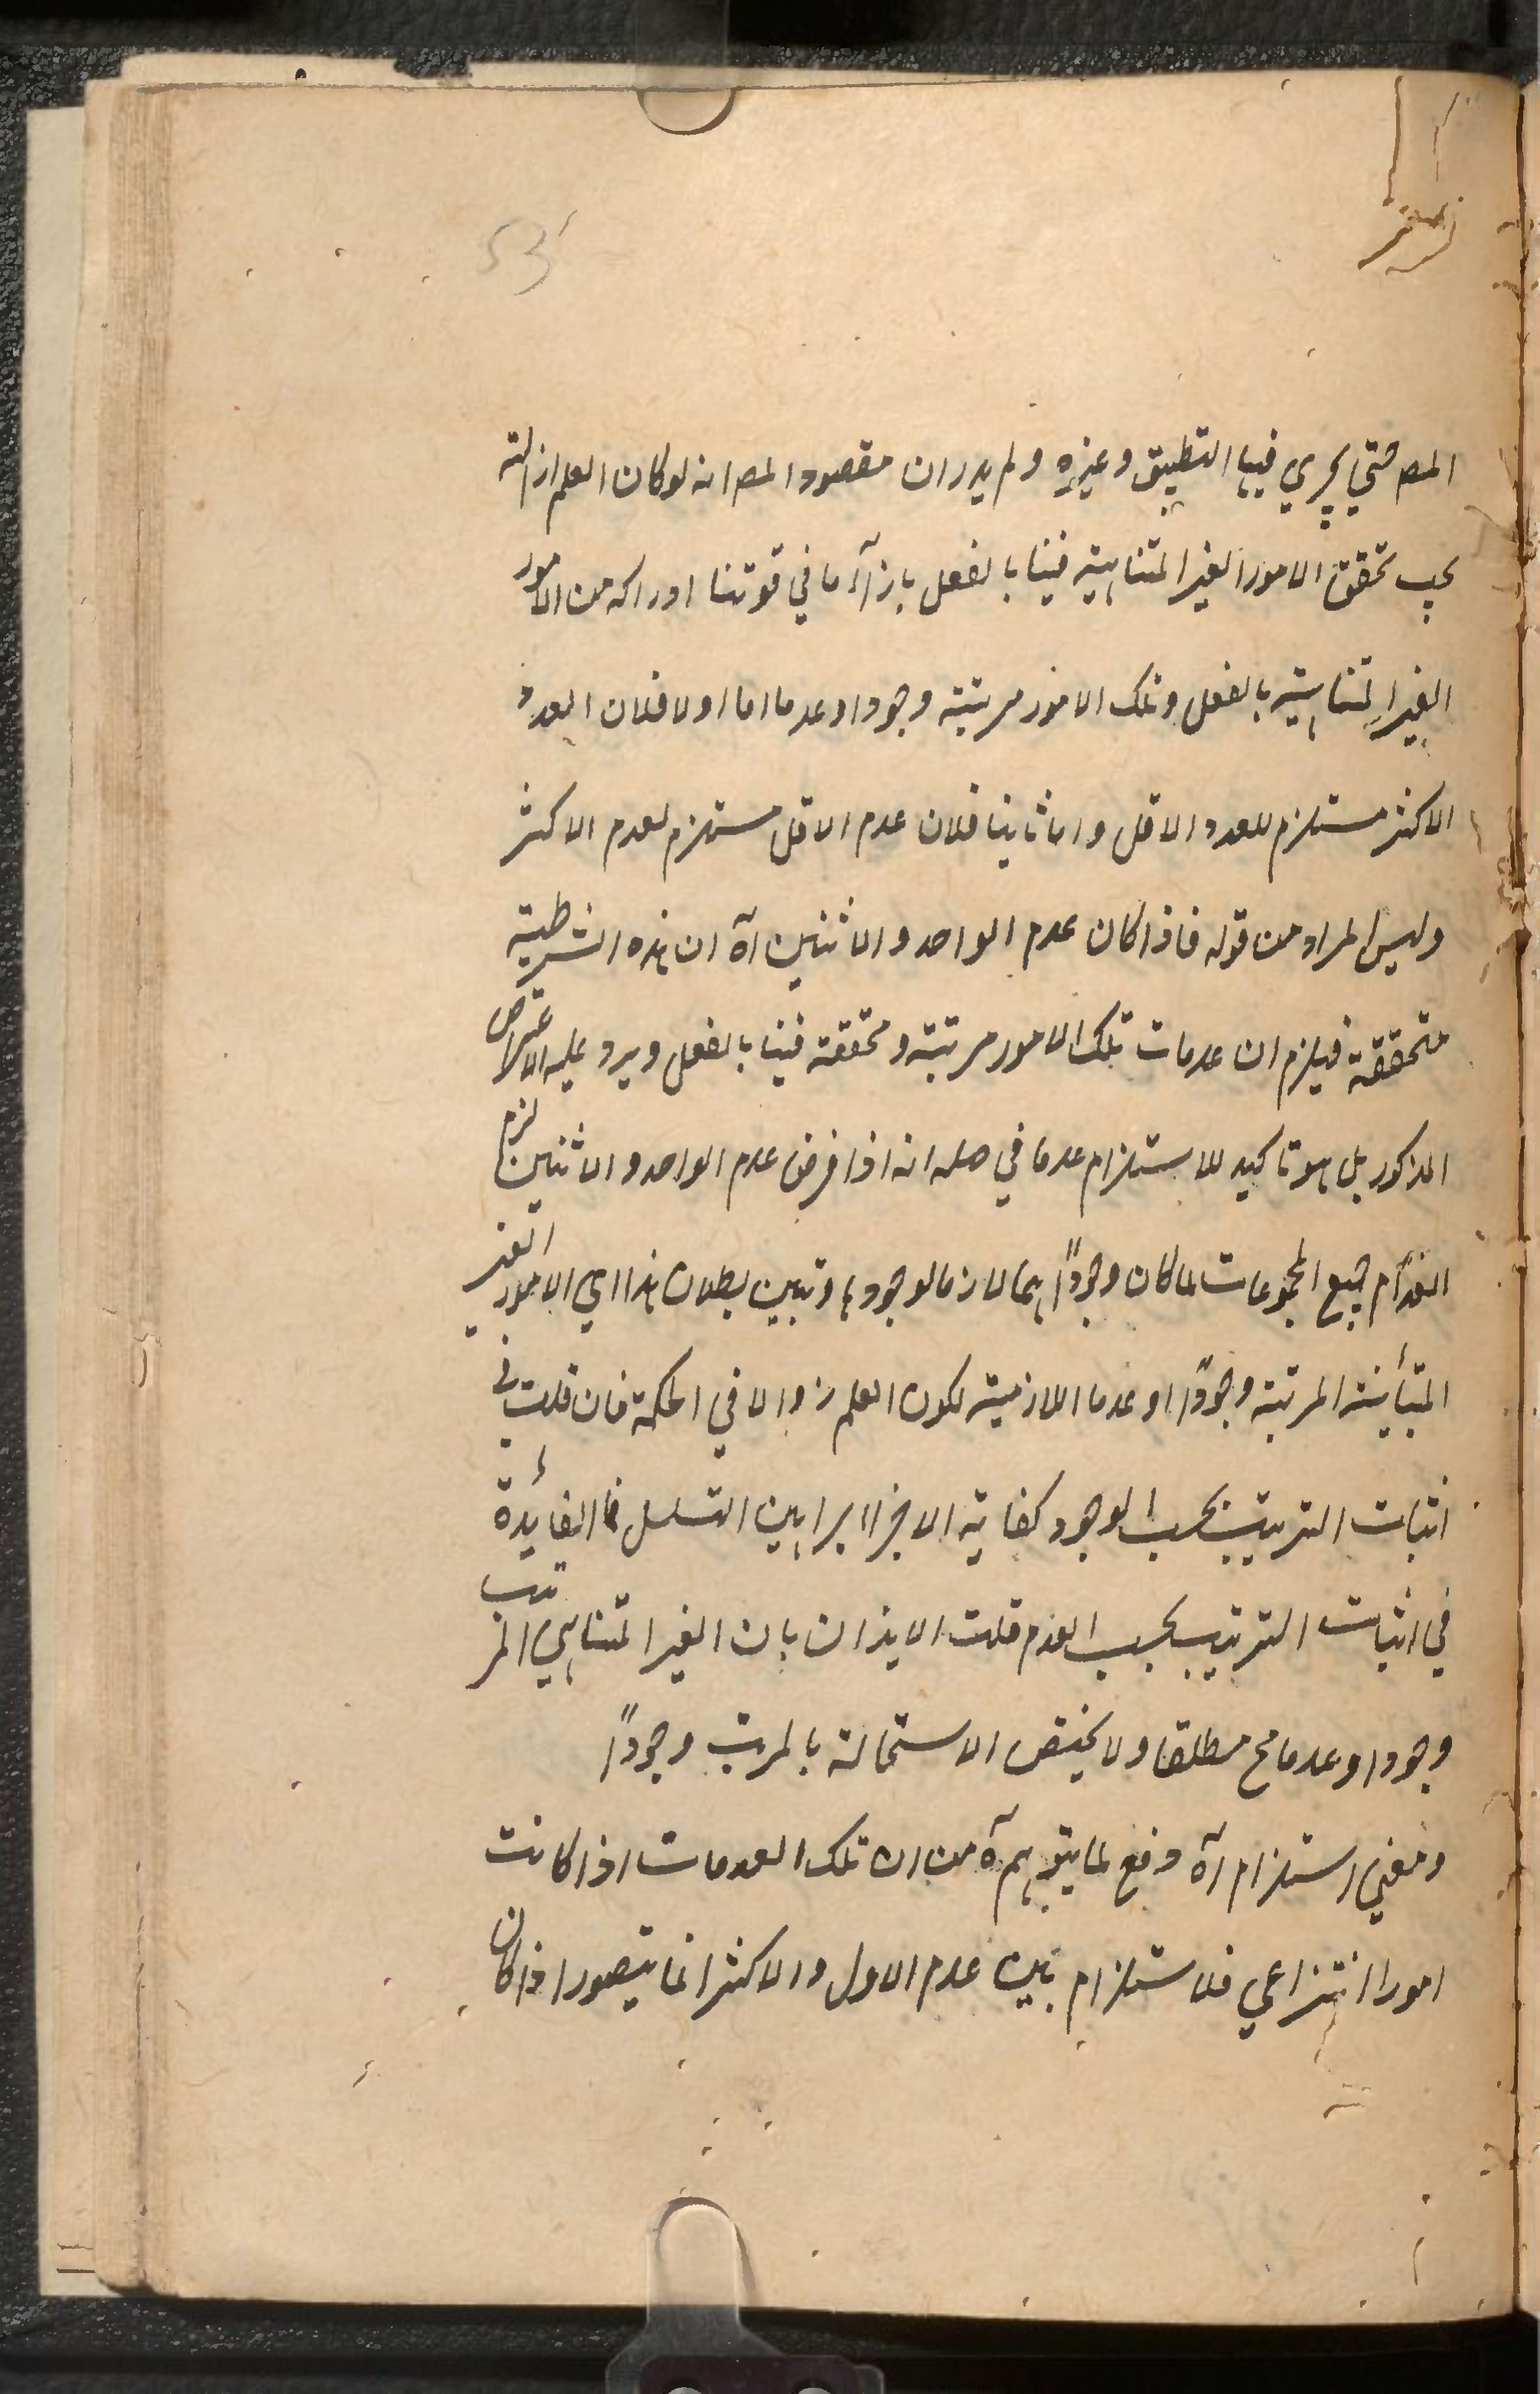 53
المص حتي يجري فيها التطبيق وغيره ولم يدر ان مقصود المص انه لو كان العلم ازالة
يجب تحقق الامور الغير المتناهية فينا بالفعل بازآء ما في قوتنا ادراكه من الامور
الغير المتناهية بالفعل وتلك الامور مرتبة وجودا وعدما اما اولا فلان العدد
الاكثر مستلزم للعدد الاقل واما ثانيا فلان عدم الاقل مستلزم لعدم الاكثر
وليس المراد من قوله فاذا كان عدم الواحد والاثنين آه ان هذه الشرطية
متحققة فيلزم ان عدمات تلك الامور مرتبة ومحققة فينا بالفعل ويرد عليه الاعتراض
المذكور بل هو تاكيد للاستلزام عدما في صله انه اذا فرض عدم الواحد والاثنين لزم
انعدام جميع المجموعات لما كان وجودًا هما لازما لوجودها وتبين بطلان هذا اي الامور الغير
المتبأينة المرتبة وجودًا او عدما اللازمية لكون العلم زوالا في الحكمة فان قلت في
اثبات الترتيب بحسب الوجود كفاية الاجراا براهين التسلسل فما الفائدة
في اثبات الترتيب بحسب العدم قلت الايذان بان الغير المتناهي المرتب
وجودا وعدما مح مطلقا ولا يختص الاستحالة بالمرتب وجودًا
ومعني استلزام آه دفع لما يتوهم آه من ان تلك العدمات اذا كانت
امورا انتزاعي فلا ستلزام بين عدم الاول والاكثر انما يتصور اذا كان